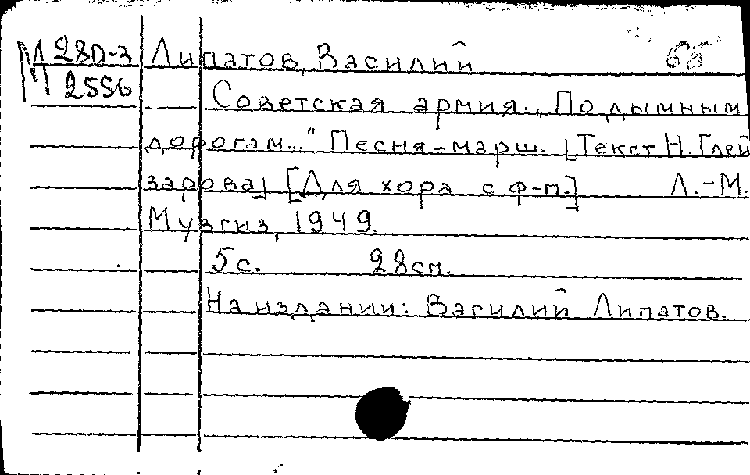 М 280-3 Липатов, Василий 65
М 2556 Советская армия. "По дымным
дорогам..." Песня-марш. [Текст Н. Глей
зарова] [Для хора с ф-п.] Л.-М.
Музгиз, 1949.
5 с. 28 см.
На издании: Василий Липатов.